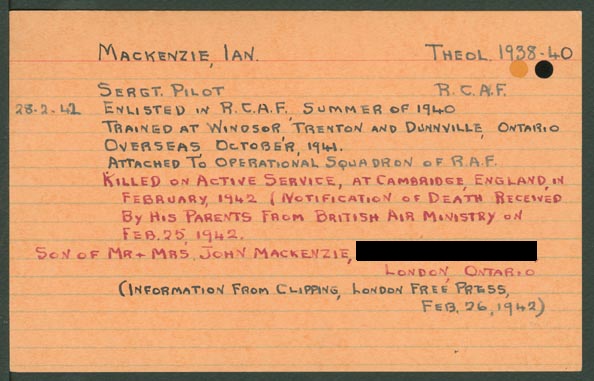 MACKENZIE, IAN. THEOL. 1938-40
SERGT. PILOT R.C.A.F.
28-2-42 ENLISTED IN R.C.A.F. SUMMER OF 1940
TRAINED AT WINDSOR, TRENTON AND DUNNVILLE, ONTARIO
OVERSEAS OCTOBER, 1941.
ATTACHED TO OPERATIONAL SQUADRON OF R.A.F.
KILLED ON ACTIVE SERVICE, AT CAMBRIDGE, ENGLAND, IN
FEBRUARY, 1942 (NOTIFICATION OF DEATH RECEIVED
BY HIS PARENTS FROM BRITISH AIR MINISTRY ON
FEB. 25, 1942.
SON OF MR + MRS. JOHN MACKENZIE,
LONDON, ONTARIO
(INFORMATION FROM CLIPPING, LONDON FREE PRESS,
FEB. 26, 1942)